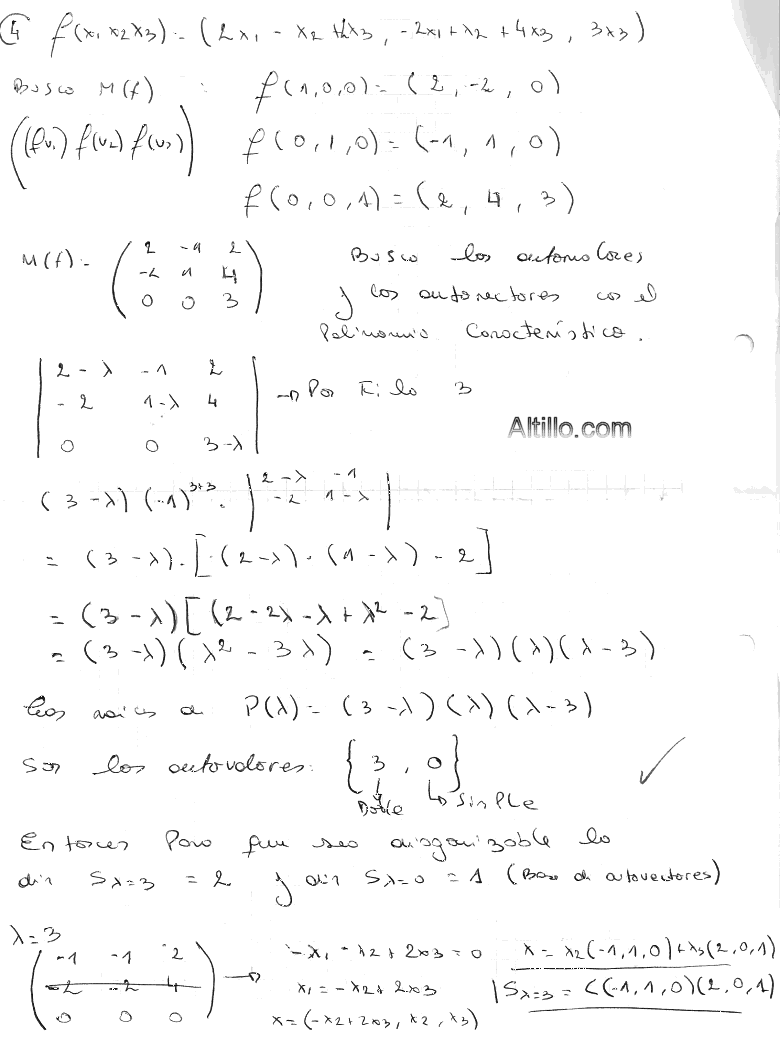 ④ f(x1 x2 x3) = (2x1 - x2 + 2x3, -2x1 + x2 + 4x3, 3x3)
Busco M(f) : f(1,0,0) = (2, -2, 0)
(f(v1) f(v2) f(v3)) f(0,1,0) = (-1, 1, 0)
f(0,0,1) = (2, 4, 3)
M(f) = ( 2 -1 2
-2 1 4
0 0 3 )
Busco los autovalores
y los autovectores con el
Polinomio Característico.
| 2-λ -1 2
-2 1-λ 4
0 0 3-λ | → Por Fila 3
Altillo.com
(3-λ) (-1)^3+3 . | 2-λ -1
-2 1-λ |
= (3-λ).[(2-λ).(1-λ) - 2]
= (3-λ)[(2-2λ-λ+λ² -2]
= (3-λ)(λ² - 3λ) = (3-λ)(λ)(λ-3)
las raices de P(λ) = (3-λ)(λ)(λ-3)
son los autovalores: {3, 0} ✓
Doble ↳ Simple
Entonces Para que sea diagonizable la
dim Sλ=3 = 2 y dim Sλ=0 = 1 (Base de autovectores)
λ=3
( -1 -1 2
-2 -2 4
0 0 0 ) →
-x1 - x2 + 2x3 = 0
x1 = -x2 + 2x3
x = (-x2+2x3, x2, x3)
x = x2(-1,1,0)+x3(2,0,1)
Sλ=3 = <(-1,1,0)(2,0,1)